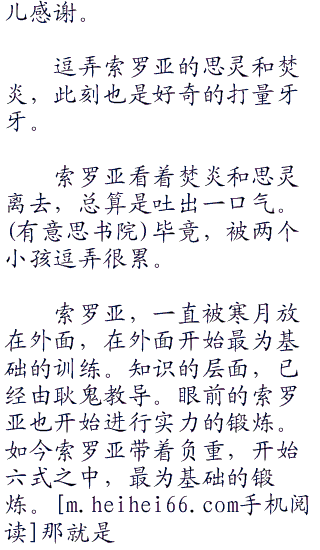 儿感谢。
逗弄索罗亚的思灵和焚
炎，此刻也是好奇的打量牙
牙。
索罗亚看着焚炎和思灵
离去，总算是吐出一口气。
(有意思书院)毕竟，被两个
小孩逗弄很累。
索罗亚，一直被寒月放
在外面，在外面开始最为基
础的训练。知识的层面，已
经由耿鬼教导。眼前的索罗
亚也开始进行实力的锻炼。
如今索罗亚带着负重，开始
六式之中，最为基础的锻
炼。[m.heihei66.com手机阅
读]那就是